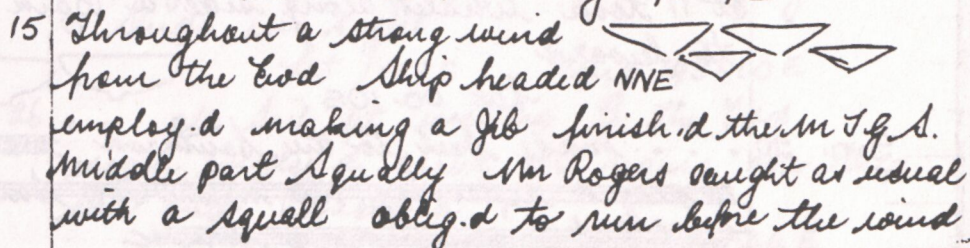 15 Throughout a strong wind
from the Ewd Ship headed NNE
employ.d making a Jib finish.d the M T G S.
Middle part Squally Mr Rogers caught as usual
with a squall oblig.d to run before the wind